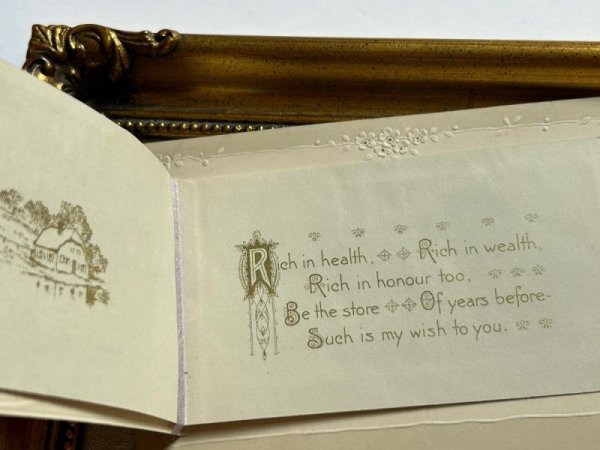 Rich in health, Rich in wealth,
Rich in honour too,
Be the store Of years before-
Such is my wish to you.